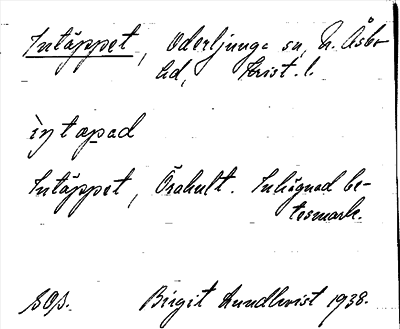 Intäppet, Oderljunga sn, N. Åsbo
hd, Krist. l.
ìŋtapad
Intäppet, Örahult. Inhägnad be-
tesmark.
Birgit Lundkvist 1938.